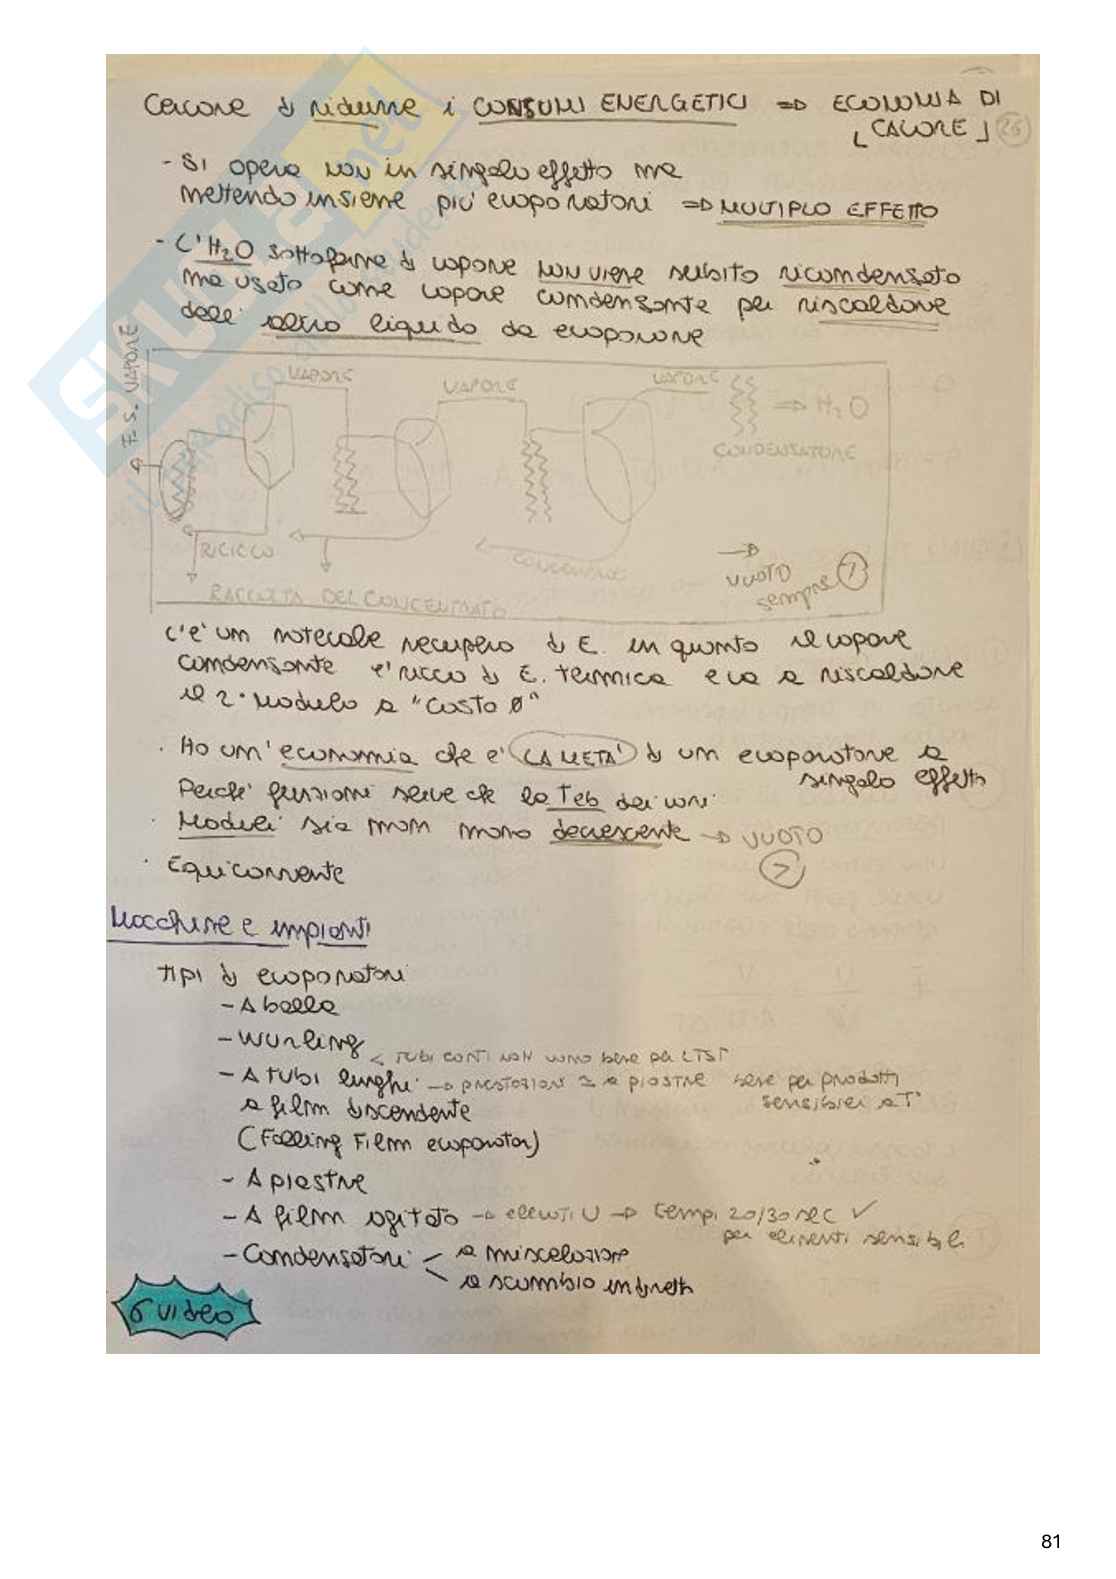 Cercare di ridurre i CONSUMI ENERGETICI => ECONOMIA DI
CALORE
26
- Si opera non in singolo effetto ma
mettendo insieme piu' evaporatori => MULTIPLO EFFETTO
- L'H2O sottoforma di vapore non viene subito ricondensata
ma usata come vapore condensante per riscaldare
dell' altro liquido da evaporare
F.S. VAPORE
VAPORE
VAPORE
VAPORE
=> H2O
CONDENSATORE
RICICLO
CONCENTRATO
VUOTO
sempre 7
RACCOLTA DEL CONCENTRATO
C'e' un notevole recupero di E. in quanto il vapore
condensante e' ricco di E. termica e va a riscaldare
il 2° modulo a "costo 0"
· Ho un' economia che e' LA META' di un evaporatore a
singolo effetto
Perche' funzioni serve che la Teb dei vari
· Moduli sia man mano decrescente -> VUOTO
>
· Equicorrente
Macchine e impianti
Tipi di evaporatori
- A bolla
- Wurling
< TUBI CORTI NON vanno bene per LTST
- A tubi lunghi -> PRESTAZIONI ≃ a PIASTRE bene per prodotti
sensibili a T°
a film discendente
(Falling Film evaporator)
- A piastre
- A film agitato -> elevati U -> tempi 20/30 sec ✓
per alimenti sensibili
- Condensatori < a miscelazione
a scambio indiretto
6 video
SKUOLA.net
81